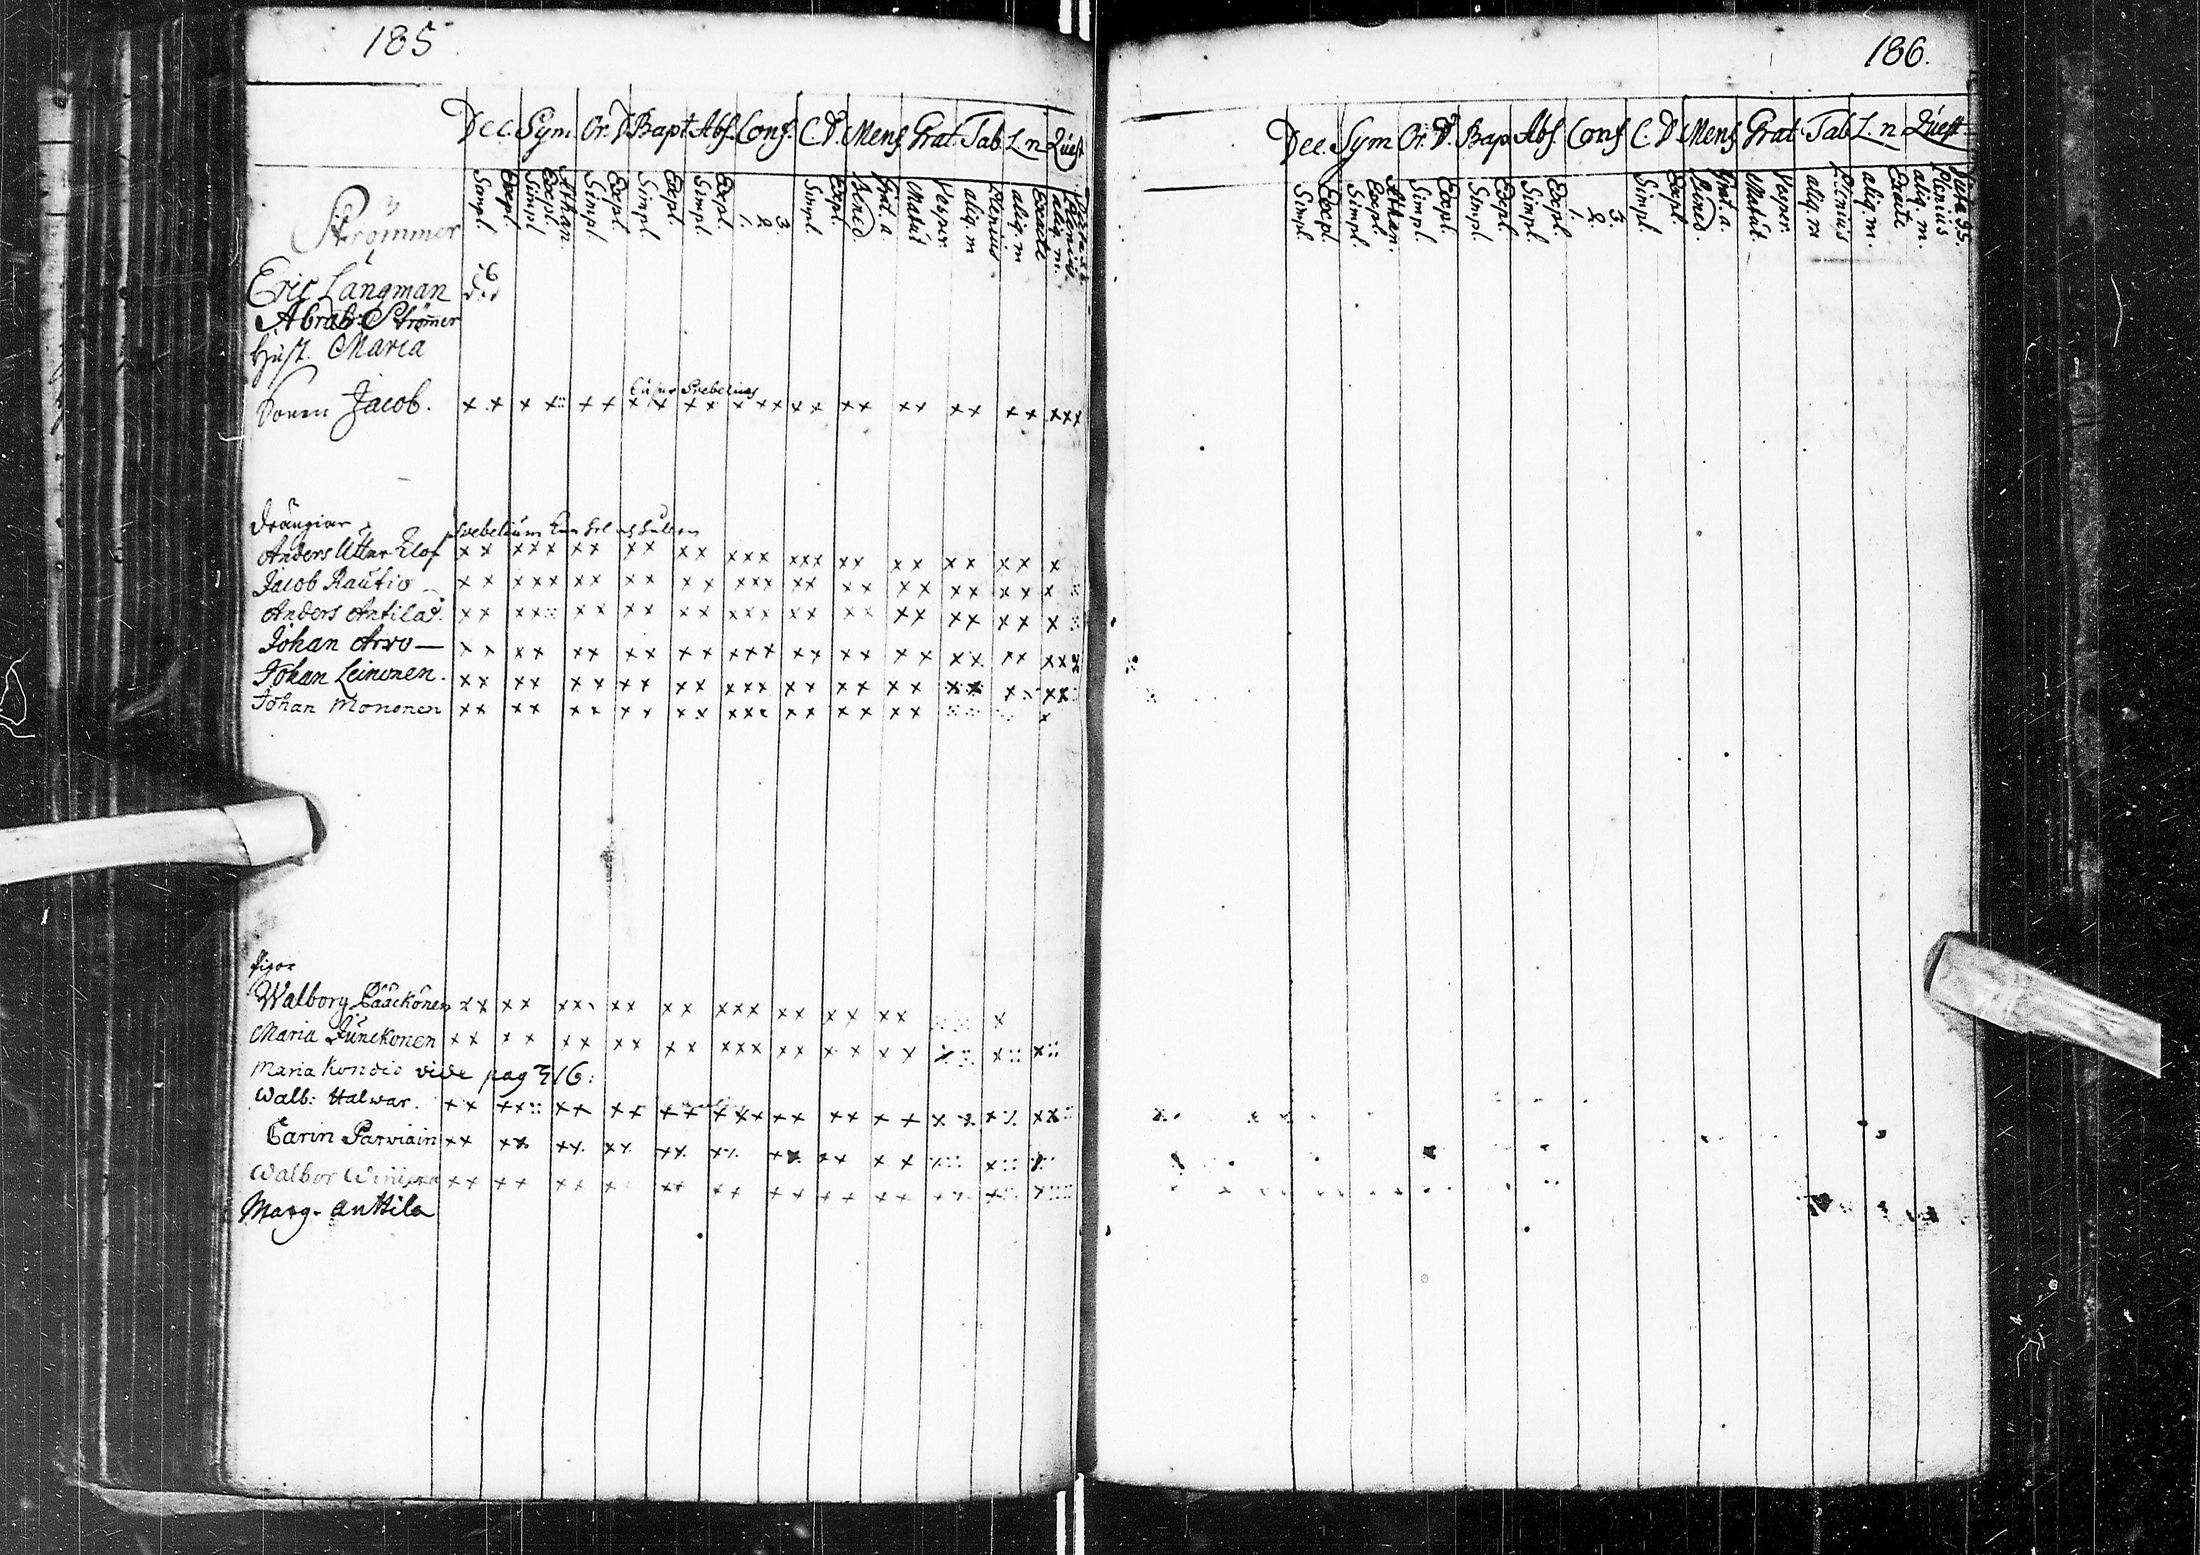 185
Dec. Sym. Or. D. Bapt. Abs. Conf. C. D. Mens Grat. Tab. L. n. Quest
Simpl. Expl. Simpl Expl. Athan. Simpl. Expl. Simpl. Expl. Simpl. Expl. 1. 2. 3 Simpl. Expl. Bened. Grat. a. Matut Vesper. aliq. m Plenius aliq. m Exacte aliq. m. Plenius
Strömmer
Eric Långman
Abrah: Strömer
Hust. Maria
Sonen Jacob.
Drängiar
Anders Uttar
Jacob Rautio
Anders Antila
Johan Arvo
Johan Leinonen.
Johan Mononen
Pigor
Walborg Pääckönen
Maria Junckonen
Maria Kondio vide pag 316:
Walb: Halwar.
Carin Parviain
Walbor
Marg. Anttila
186.
Dec. Sym Or. D. Bap. Abs. Conf C. D Mens Grat. Tab L. n. Quest
Simpl. Expl. Simpl. Expl. Athan. Simpl. Expl. Simpl. Expl. Simpl. Expl. 1. 2. 3. Simpl. Expl. Bened. Grat. a. Matut. Vesper. aliq. m Plenius aliq. m. Exacte aliq. m. Plenius